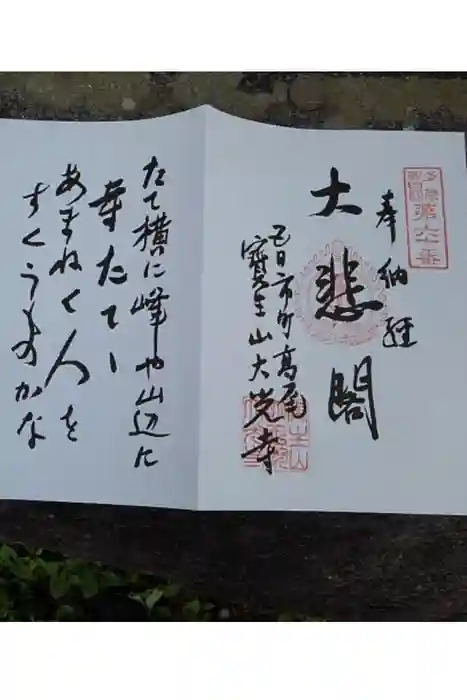 奉納経
大悲閣
五日市町高尾
寳生山大光寺
たて横に峰や山辺に
寺たてし
あまねく人を
すくうものかな